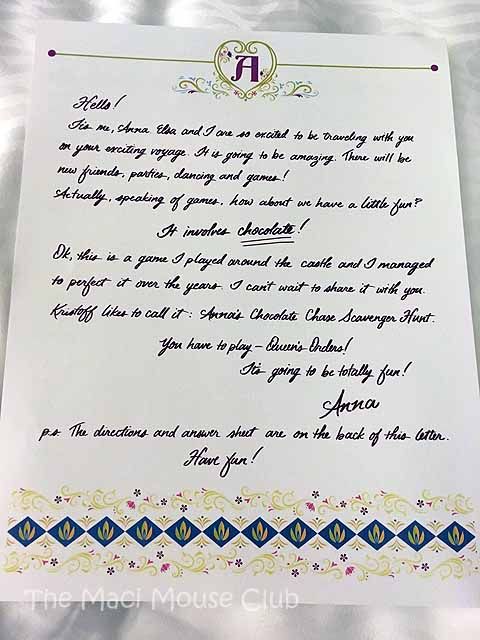 A
Hello!
It's me, Anna. Elsa and I are so excited to be traveling with you
on your exciting voyage. It is going to be amazing. There will be
new friends, parties, dancing and games!
Actually, speaking of games, how about we have a little fun?
It involves chocolate!
Ok, this is a game I played around the castle and I managed
to perfect it over the years. I can't wait to share it with you.
Kristoff likes to call it: Anna's Chocolate Chase Scavenger Hunt.
You have to play - Queen's Orders!
It's going to be totally fun!
Anna
p.s. The directions and answer sheet are on the back of this letter.
Have fun!
The Maci Mouse Club